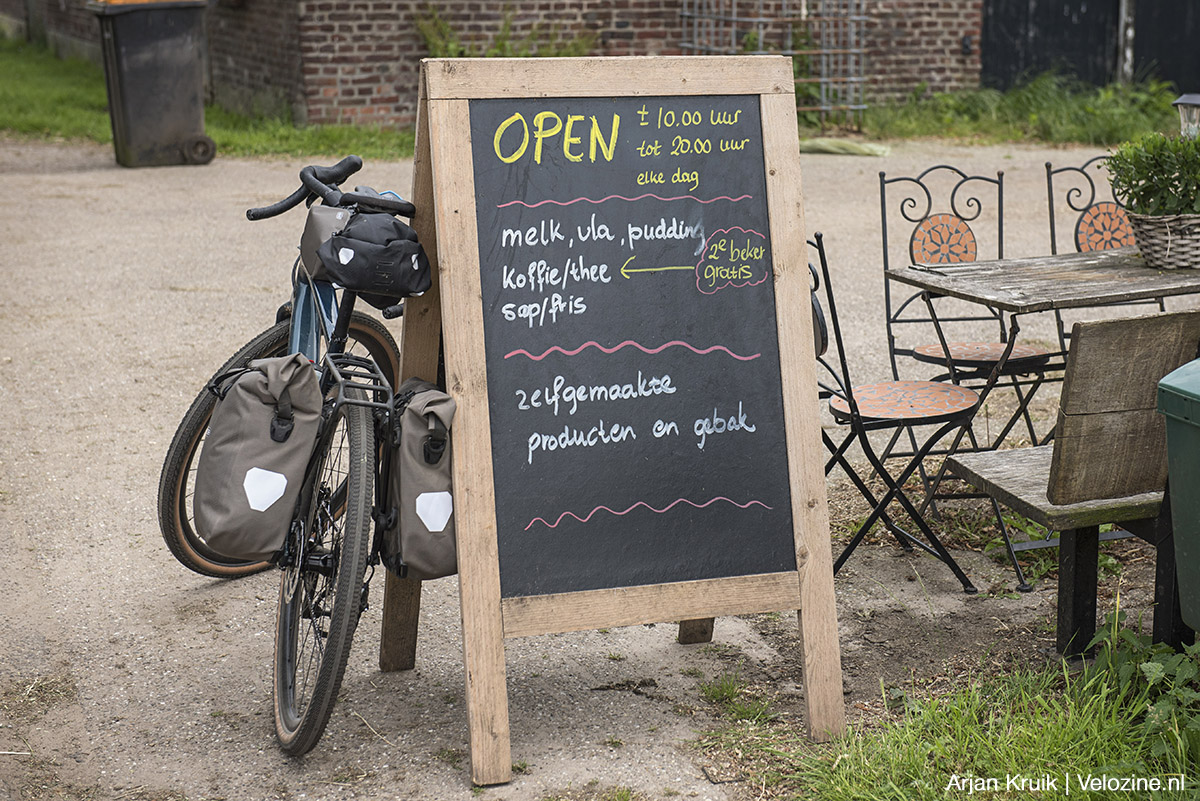 OPEN
± 10.00 uur
tot 20.00 uur
elke dag
melk, vla, pudding
koffie/thee
2e beker
gratis
sap/fris
zelfgemaakte
producten en gebak
Arjan Kruik | Velozine.nl